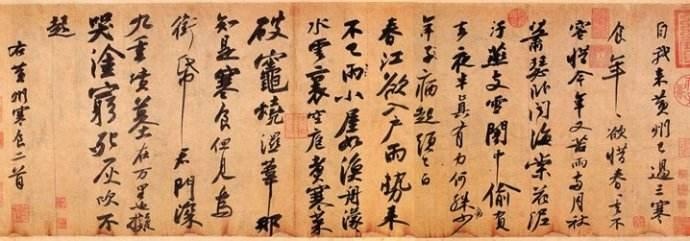 自我來黃州已過三寒
食年〻欲惜春〻去不
容惜今年又苦雨兩月秋
蕭瑟卧聞海棠花泥
汙燕支雪闇中偷負
去夜半真有力何殊病少
年子病起頭已白
春江欲入戶雨勢來
不已雨小屋如漁舟濛〻
水雲裏空庖煮寒菜
破竈燒濕葦那
知是寒食但見烏
銜帋君門深
九重墳墓在万里也擬
哭塗窮死灰吹不
起
右黃州寒食二首